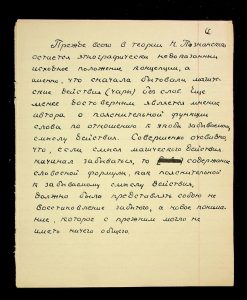 6
Прежде всего в теории Н. Познанского
остается этнографически недоказанным
исходное положение концепции, а
именно, что сначала бытовали магиче-
ские действия (чары) без слов. Еще
менее достоверным является мнение
автора о пояснительной функции
слова по отношению к якобы забываемому
смыслу действия. Совершенно очевидно,
что, если смысл магического действия
начинал забываться, то содержание
словесной формулы, как пояснительной
к забываемому смыслу действия,
должно было представлять собою не
восстановление забытого, а новое понима-
ние, которое с прежним могло не
иметь ничего общего.